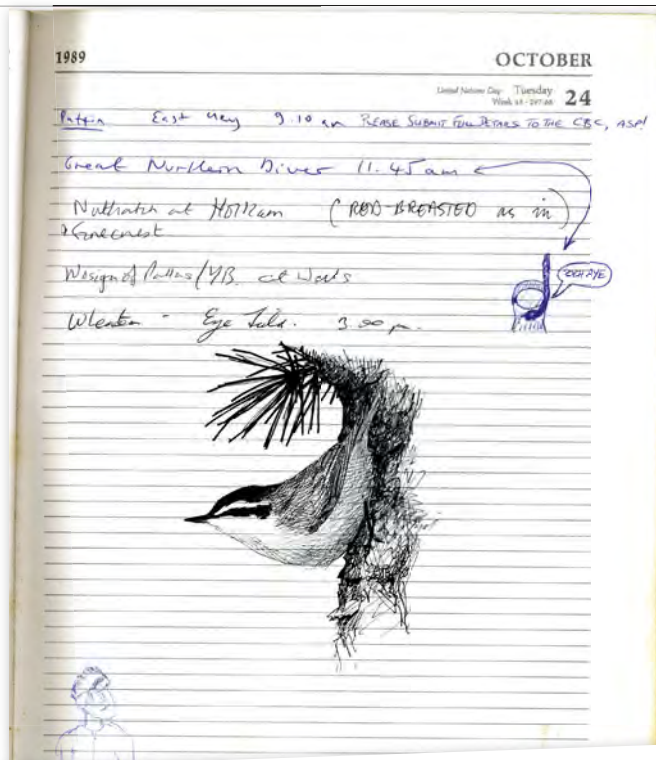 1989 OCTOBER
United Nations Day Tuesday 24
Week 43 · 297-68
Puffin East 9.10 am PLEASE SUBMIT FULL DETAILS TO THE CBC, ASP!
Great Northern Diver 11.45am
Nuthatch at Holkham (RED-BREASTED as in)
& Firecrest
OOH AYE
of Pallas/YB. at Wells
Wheatear - Eye Field. 3.00 p.